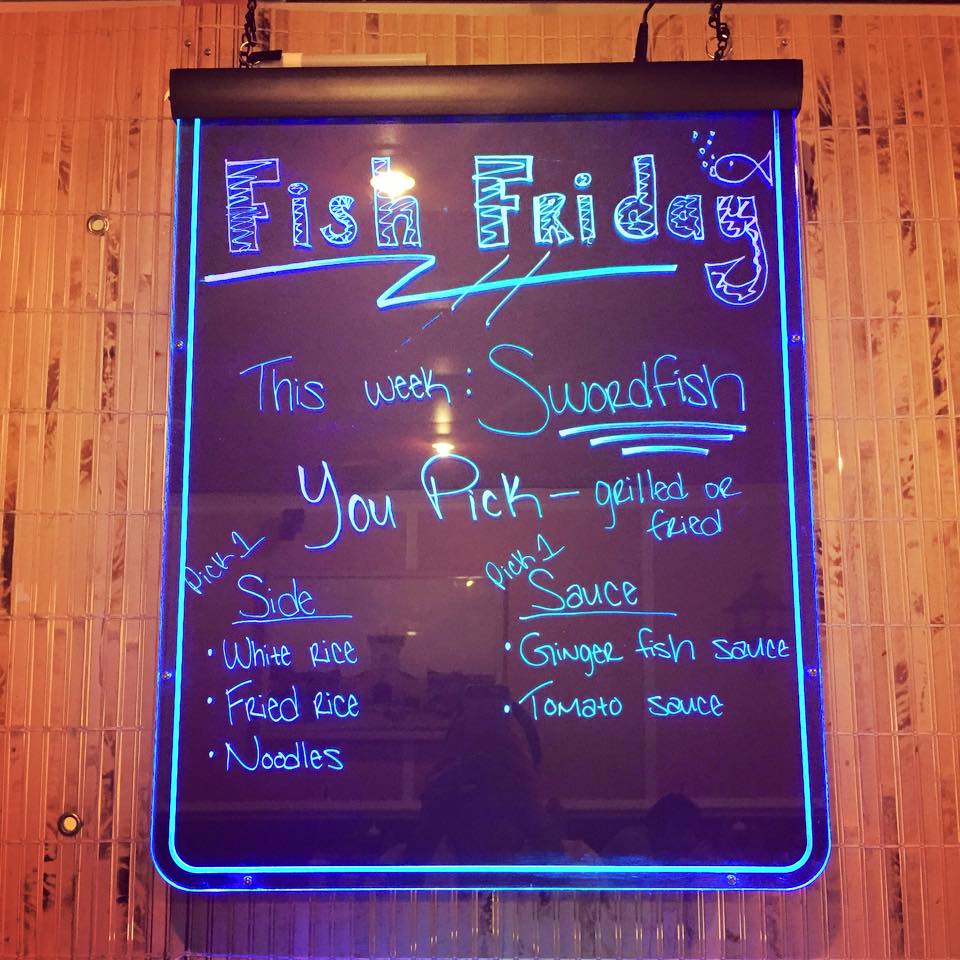 Fish Friday
This week: Swordfish
You Pick - grilled or
fried
Pick 1
Side
• White Rice
• Fried Rice
• Noodles
Pick 1
Sauce
• Ginger fish sauce
• Tomato sauce